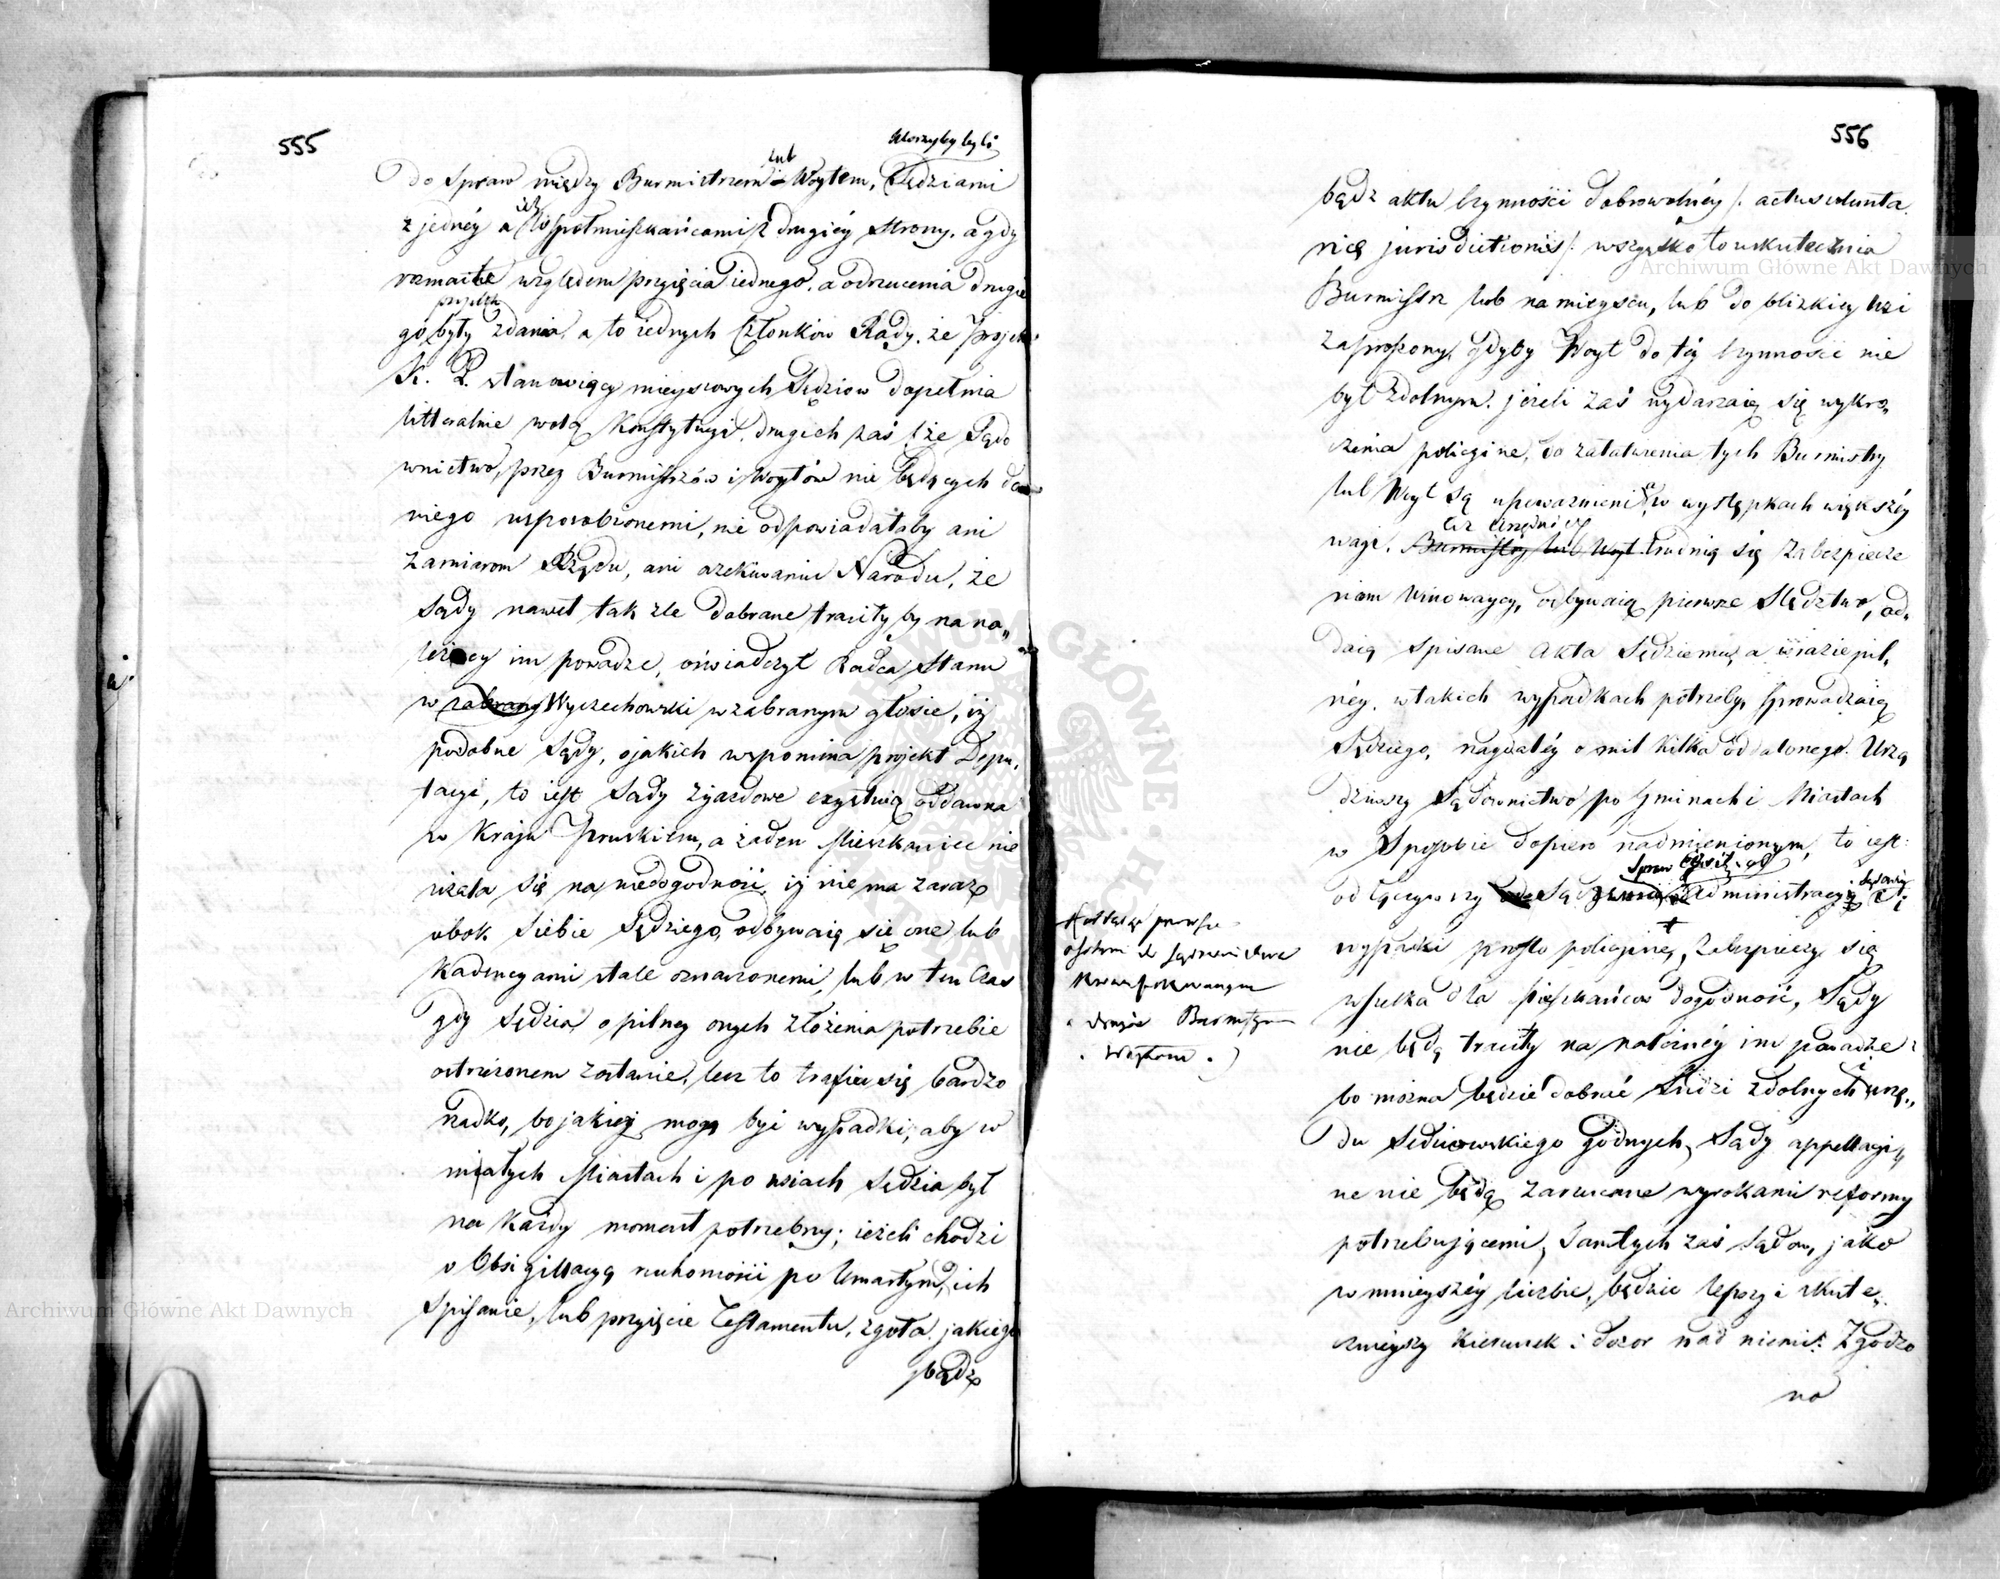 555
którzyby byli
do Spraw między Burmistrzem lub Woytem, Sędziami
z jednéy a ich Współmieszkańcami z drugiéy Strony. a gdy
rozmaite względem przyięcia iednego, a odrzucenia drugie
go były zdania, a to iednych Członków Rady, że projekt
K. P. stanowiący mieyscowych Sędziow dopełnia
litteralnie wolą Konstytucyi, drugich zaś że Sądo
wnictwo, przez Burmistrzów i Woytów nie będących do
niego usposobionemi, nie odpowiadałaby ani
zamiarom Rządu, ani oczekiwaniu Narodu, że
Sądy nawet tak źle dobrane traciły by na na„
leżącey im powadze, oświadczył Radca Stanu
w zabrany Wyczechowski w zabranym głosie, iż
podobne Sądy, o jakich wspomina projekt Depu„
tacyi, to iest Sądy zjazdowe exystuią oddawna
w Kraju Pruskim, a żaden Mieszkaniec nie
użala się na niedogodność, iż nie ma zaraz
obok Siebie Sędziego, odbywaią się one lub
Kadencyami stale oznaczonemi, lub w ten Czas
gdy Sędzia o pilney onych złożenia potrzebie
ostrzeżonem zostanie, lecz to trafia się bardzo
rzadko, bo jakież mogą być wypadki, aby w
małych Miastach i po wsiach Sędzia był
na każdy moment potrzebny; ieżeli chodzi
o Obsigillacyą ruchomości po Umarłym, ich
Spisanie, lub przyięcie Testamentu, zgoła jakiego
bądź
556
bądź aktu czynności dobrowolnéy /: actus volunta„
riae jurisdictionis :/ wszystko to uskutecznia
Burmistrz lub na mieyscu, lub do blizkiey wsi
zaproszony, gdyby Woyt do téy czynności nie
był zdolnym. jeżeli zaś wydarzaią się wykro„
czenia policyine, do załatwienia tych Burmistrz
lub Woyt są upoważnieni, w występkach większéy
wagi, ciż Urzędnicy Burmistrz lub Woyt trudnią się zabezpiecze
niem Winowaycy, odbywaią pierwsze Śledztwo, od„
daią Spisane Akta Sędziemu, a w razie pil„
néy w takich wypadkach potrzeby, Sprowadzaią
Sędziego, naydaléy o mil kilka oddalonego. Urzą
dziwszy Sądownictwo po Gminach i Miastach
w Sposobie dopiero nadmienionym, to iest:
Spraw
odłączywszy Administracyi
wypadki prosto policyine, zabezpieczy się
wszelka dla Mieszkańców dogodność, Sądy
nie będą traciły na należnéy im powadze
bo można będzie dobrać Ludzi zdolnych i urzę„
du Sędziowskiego godnych, Sądy appellacyi„
ne nie będą zarzucone wyrokami reformy
potrzebującemi, Samych zaś Sądow, jako
w mnieyszéy liczbie, będzie lepszy i skute„
cznieyszy kierunek i dozor nad niemi: Zgodzo
no
Burmistrzom
Woytom.)
Archiwum Główne Akt Dawnych
Archiwum Główne Akt Dawnych